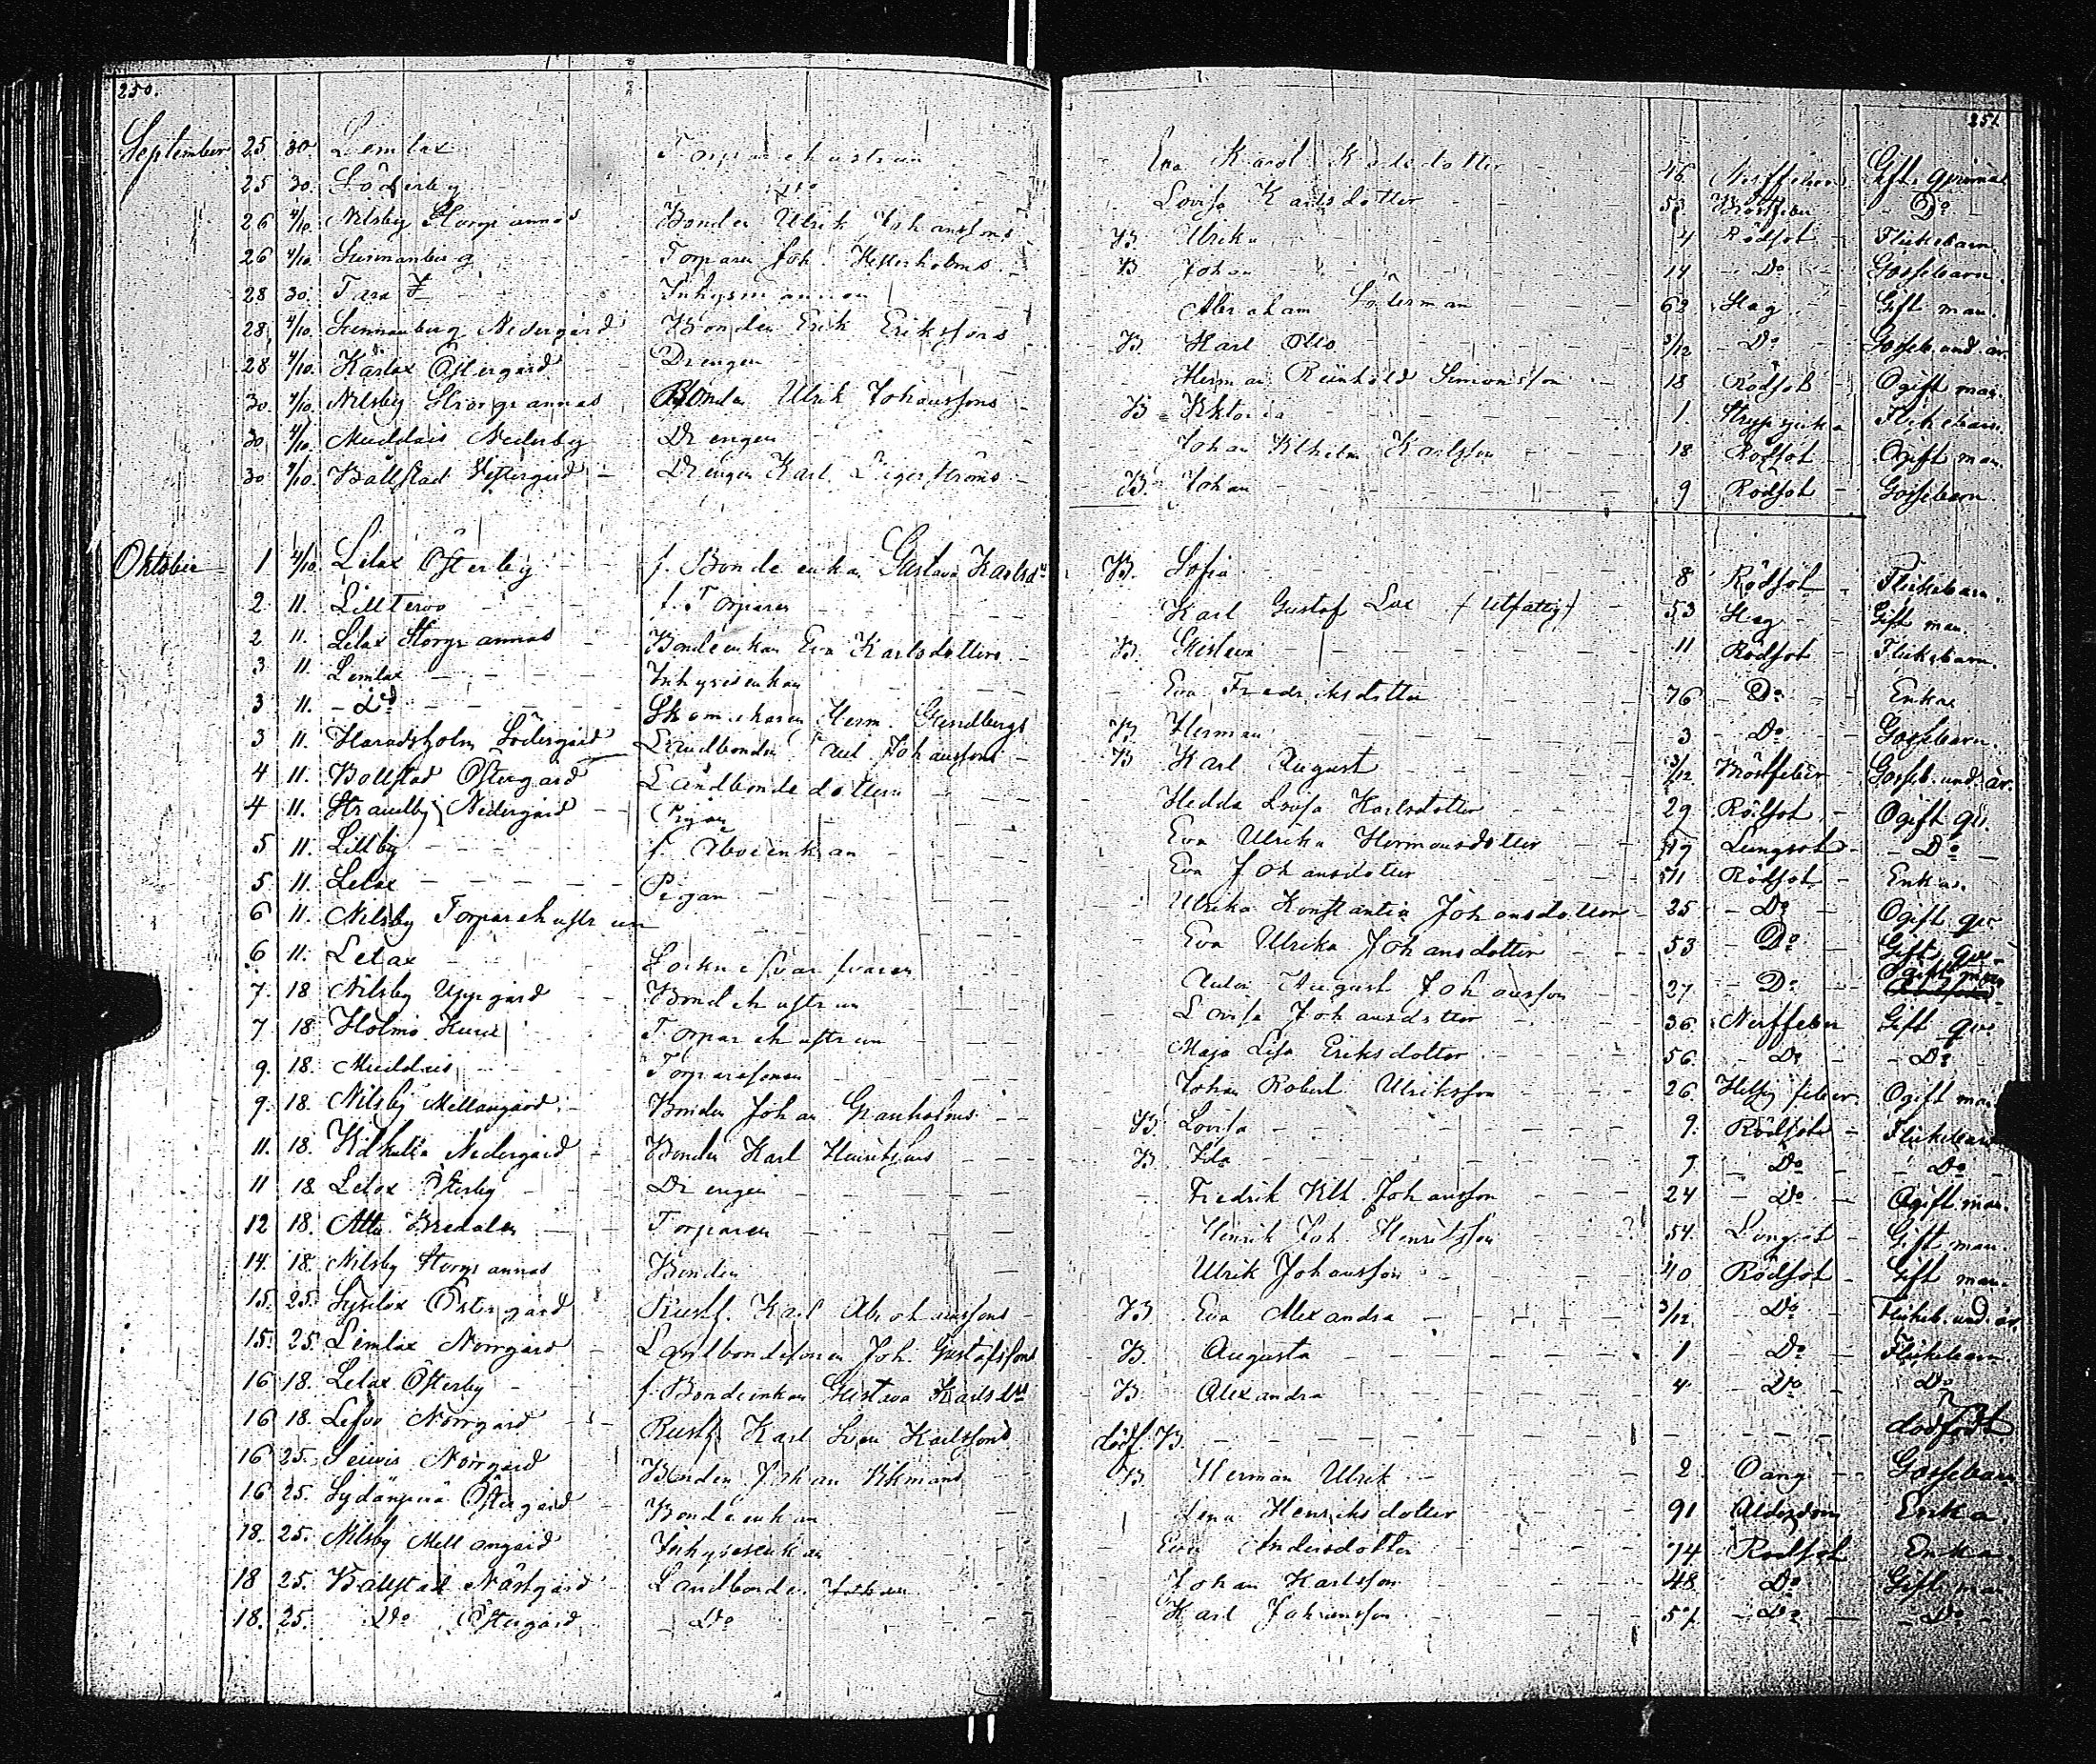 250.
251
September 25 30. Lemlax Torparehustrun Eva Karol. Karlsdotter 46 Nerffeber Gift qvinna
25 30. Söderby Do Lovisa Karlsdotter 53. Bröstfeber Do
26 4/10. Nilsby Storgrannas Bonden Ulrik Johanssons B. Ulrika 4 Rödsot Flickebarn.
26 4/10. Torparen Joh. Westerholms B Johan 14 Do Gossebarn
28 30. Inhysesmannen Abraham Söderman 62 Slag Gift man.
28. 4/10. Nedergård Bonden Erik Erikssons B. Karl Otto 3/12 Do Gosseb. und. år.
28 4/10. Kärlax Östergård Drengen Herman Reinhold Simonsson 18 Rödsot Ogift man.
30. 4/10. Nilsby Storgrannas Bonden Ulrik Johanssons B. Viktoria 1. Strypsjuka Flickebarn.
30 4/10. Muddais Nederby Drengen Johan Vilhelm Karlsson 18 Rödsot Ogift man.
30 4/10. Bollstad Vestergård Drengen Karl B. Johan 9 Rödsot Gossebarn.
Oktober 1 4/10. Lelax Österby f. Bondeenkan Gustava Karlsdr B. Sofia 8 Rödsot Flickebarn.
2. 11. Lilltervo f. Torparen Karl Gustaf Lax (utfattig) 53 Slag Gift man.
2 11. Lelax Storgrannas Bondeenkan Eva Karlsdotters B. Gustava 11 Rödsot Flickebarn.
3 11. Lemlax Inhysesenkan Eva Fredriksdotter 76 Do Enka.
3 11. Do Skomakaren Herm. Grendbergs B Herman 3 Do Gossebarn.
3 11. Haradsholm Södergård Landbonden Karl Johanssons B Karl August 3/12 Bröstfeber Gosseb. und. år.
4 11. Bollstad Östergård Landbondedottern Hedda Lovisa Karlsdotter 29 Rödsot Ogift qv.
4 11. Strandby Nedergård Pigan Eva Ulrika Hermansdotter 19 Lungsot Do
5 11. Lillby f. Åboenkan Eva Johansdotter 71 Rödsot Enka.
5 11. Lelax Pigan Ulrika Konstantia Johansdotter 25 Do Ogift qv.
6 11. Nilsby Torparehustrun Eva Ulrika Johansdotter 53 Do Gift qv.
6 11. Lelax Sockneskräddaren Anton August Johansson 27 Do Ogift man
7. 18 Nilsby Uppgård Bondehustrun Lovisa Johansdotter 36. Nerffeber Gift qv.
7 18 Holmo Torparehustrun Maja Lisa Eriksdotter 56. Do Do
9. 18. Muddais Torparesonen Johan Robert Ulriksson 26. Hetsig feber. Ogift man
9. 18. Nilsby Mellangård Bonden Johan Granholms B. Lovisa 9. Rödsot Flickebarn
11. 18. Nedergård Bonden Karl Henrikssons B. Ida 7 Do Do
11 18. Lelax Österby Drengen Fredrik Vilh. Johansson 24 Do Ogift man.
12 18. Attu Bredalen Torparen Henrik Joh. Henriksson 54. Lungsot Gift man.
14. 18. Nilsby Storgrannas Bonden Ulrik Johansson 40 Rödsot Gift man.
15. 25. Sysilax Östergård Rusth. Karl Abrahamssons B. Eva Alexandra 3/12. Do Flickeb. und. år.
15. 25. Lemlax Norrgård Landbondesonen Joh. Gustafssons B. Augusta 1 Do Flickebarn.
16 18. Lelax Österby f. Bondeenkan Gustava Karlsdrs B. Alexandra 4 Do Do
16 18. Norrgård Rusth. Karl Karlssons dödf. B. dödfödt
16 25. Norrgård Bonden Johan Vikmans B. Herman Ulrik 2 Gossebarn.
16 25. Sydänperä Östergård Bondeenkan Lena Henriksdotter 91 Ålderdom Enka.
18. 25. Nilsby Mellangård Inhysesenkan Eva Andersdotter 74 Rödsot Enka.
18 25. Bollstad Landbonden Johan Karlsson 48. Do Gift man
18. 25. Do Östergård Do Karl Johansson 57. Do Do